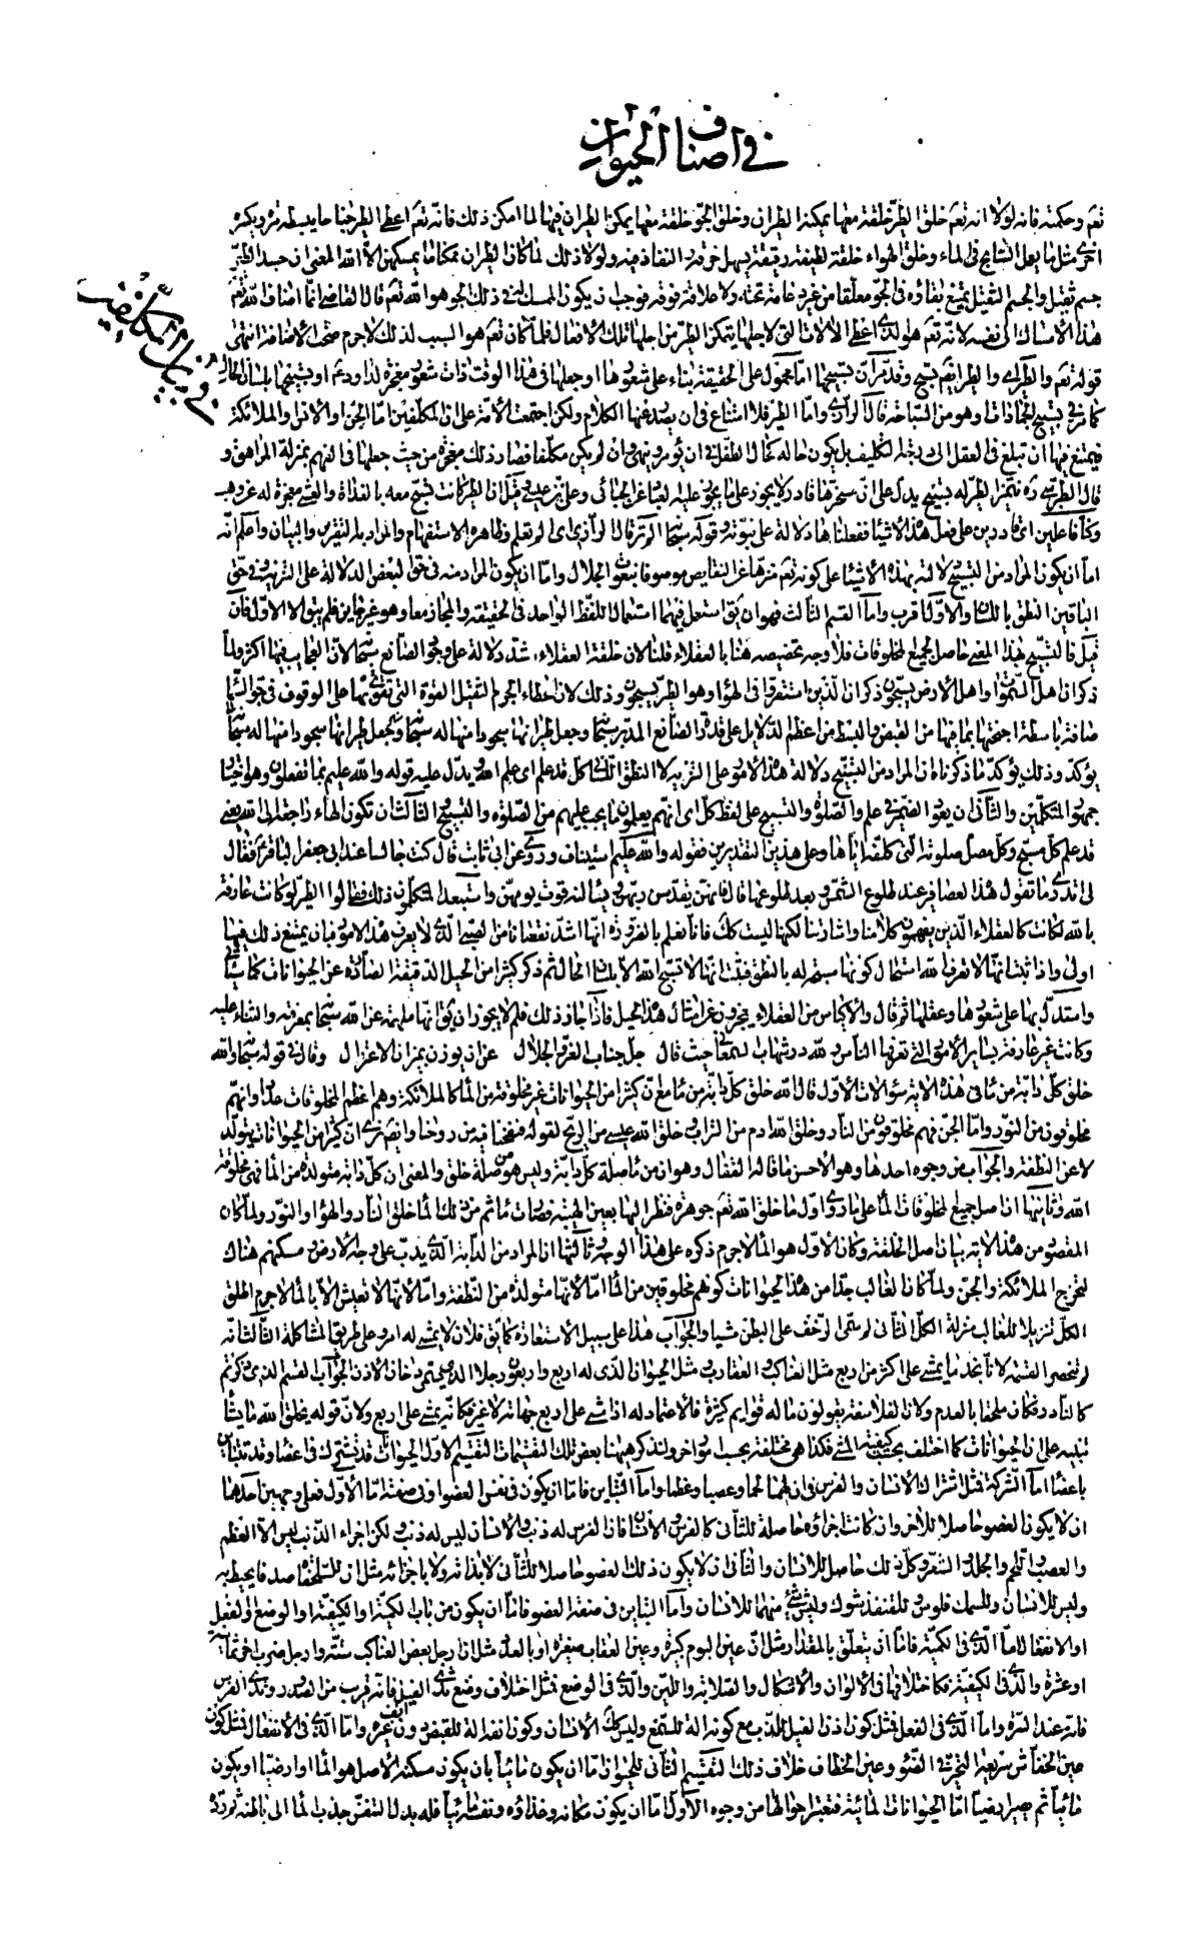 في اصناف الحيوان
في بيان المكلفين
تعم وحكمته فانه لولا انه تعم خلق الطير خلقة معها يمكنه الطيران وخلق الجو خلقة معها يمكن الطيران فيها لما امكن ذلك فانه تعم اعطى الطير جناحا يبسطه مرة ويكسره
اخرى مثل ما يعمل السابح في الماء وخلق الهواء خلقة لطيفة رقيقة يسهل خرقه والنفاذ فيه ولولا ذلك لما كان الطيران ممكنا ما يمسكهن الا الله المعنى ان جسد الطير
جسم ثقيل والجسم الثقيل يمتنع بقاؤه في الجو معلقا من غير دعامة تحته ولا علاقة فوقه فوجب ان يكون الممسك له في ذلك الجو هو الله تعم قال القاضي انما اضاف الله تعم
هذا الامساك الى نفسه لانه تعم هو الذي اعطى الالات التي لاجلها يتمكن الطير من اجلها تلك الافعال فلما كان تعم هو السبب لذلك لا جرم صحت الاضافة انتهى
قوله تعم والطير اي والطير ايضم يسبح
كما مر في تسبيح الجمادات وهو من السباحة قال الرازي واما الطير فلا امتناع في ان يصدر عنها الكلام ولكن اجتمعت الامة على ان المكلفين اما الجن او الانس او الملائكة
فيمتنع فيها ان تبلغ في العقل الى درجة التكليف بل يكون حاله كحال الطفل في ان يؤمر وينهى وان لم يكن مكلفا فصار ذلك معجزة من حيث جعلها في الفهم بمنزلة المراهق و
قال الطبرسي ره تسخير الطير له تسبيح يدل على ان مسخرها قادر لا يجوز عليه ما يجوز على العباد عن الجبائي وعلي بن عيسى وقيل ان الطير كانت تسبح معه بالغداة والعشي معجزة له عن وهب
وكنا فاعلين اي قادرين على فعل هذه الاشياء ففعلناها دلالة على نبوته وقوله سبحانه الم تر قال الرازي اي الم تعلم وظاهره الاستفهام والمراد به التقرير والبيان واعلم انه
اما ان يكون المراد من التسبيح دلالته بهذه الاشياء على كونه تعم منزها عن النقايص موصوفا بنعوت الجلال واما ان يكون المراد منه في حق البعض الدلالة على التنزيه وفي حق
الباقين النطق باللسان والاول اقرب واما القسم الثالث فهو ان يقم استعمل فيهما استعمال اللفظ الواحد في الحقيقة والمجاز معا وهو غير جايز فلم يبق الا الاول فان
قيل فالتسبيح بهذا المعنى حاصل لجميع المخلوقات فلا وجه تخصيصه هنا بالعقلاء قلنا لان خلقة العقلاء اشد دلالة على وجود الصانع سبحانه لان العجايب فيها اكثر ولما
ذكر ان اهل السموات واهل الارض يسبحون ذكر ان الذين استقروا في الهواء وهو الطير يسبحون وذلك لان اعطاء الجرم الثقيل القوة التي تقوى بها على الوقوف في جو السماء
صافة باسطة اجنحتها بما فيها من القبض والبسط من اعظم الدلايل على قدرة الصانع المدبر سبحانه وجعل طيرانها سجودا منها له سبحانه
يؤكد وذلك يؤكد ما ذكرناه ان المراد من التسبيح دلالة هذه الامور على التنزيه لا النطق اللساني كل قد علم اي علم الله ويدل عليه قوله والله عليم بما يفعلون وهو اختيار
جمهور المتكلمين والثاني ان يعود الضمير في علم والصلوة والتسبيح على لفظ كل اي انهم يعلمون ما يجب عليهم من الصلوة والتسبيح الثالث ان تكون الهاء راجعة الى الله يعني
قد علم كل مسبح وكل مصل صلوة الله التي كلفه اياها وعلى هذين التقديرين فقوله والله عليم استيناف وروي عن ابي ثابت قال كنت جالسا عند ابي جعفر الباقر ع فقال
لي اتدري ما تقول هذه العصافير عند طلوع الشمس وبعد طلوعها قال فانهن يقدسن ربهن ويسئلنه قوت يومهن واستبعد المتكلمون ذلك فقالوا الطير لو كانت عارفة
بالله لكانت كالعقلاء الذين يفهمون كلامنا واشارتنا لكنها ليست كك فانا نعلم بالضرورة انها اشد نقصانا من الصبي الذي لا يعرف هذه الامور فبان يمتنع ذلك فيها
اولى واذا ثبت انها لا تعرف الله استحال كونها مسبحة له بالنطق فثبت انها لا تسبح الله الا بلسان الحال ثم ذكر كثيرا من الحيل الدقيقة الصادرة عن الحيوانات كما سيأتي
واستدل بها على شعورها وعقلها ثم قال والاكياس من العقلاء يعجزون عن امثال هذه الحيل فاذا جاز ذلك فلم لا يجوز ان يقم انها ملهمة عن الله سبحانه بمعرفته والثناء عليه
وكانت غير عارفة بساير الامور التي تعرفها الناس ولله در شهاب السمعاني حيث قال جل جناب العز والجلال عن ان يوزن بميزان الاعتزال وقال في قوله سبحانه والله
خلق كل دابة من ماء في هذه الاية سؤالات الاول قال الله خلق كل دابة من ماء مع ان كثيرا من الحيوانات غير مخلوقة من الماء كالملائكة وهم اعظم المخلوقات عددا وانهم
مخلوقون من النور واما الجن فهم مخلوقون من النار وخلق الله ادم من التراب وخلق الله عيسى من الريح لقوله فنفخنا فيه من روحنا وايضم نرى ان كثيرا من الحيوانات يتولد
لا عن النطفة والجواب من وجوه احدها وهو الاحسن ما قاله القفال وهو ان من ماء صلة كل دابة وليس هو من صلة خلق والمعنى ان كل دابة متولدة من الماء فهي مخلوقة
الله وثانيها ان اصل جميع المخلوقات الماء على ما روي اول ما خلق الله تعم جوهرة فنظر اليها بعين الهيبة فصارت ماء ثم من ذلك الماء خلق النار والهواء والنور ولما كان
المقصود من هذه الاية بيان اصل الخلقة وكان الاول هو الماء لا جرم ذكره على هذا الوجه وثالثها ان المراد من الدابة الذي يدب على وجه الارض ومسكنهم هناك
لتخرج الملائكة والجن ولما كان الغالب جدا من هذه الحيوانات كونهم مخلوقين من الماء اما لانها متولدة من النطفة واما لانها لا تعيش الا بالماء لا جرم اطلق
الكل تنزيلا للغالب منزلة الكل الثاني لم سمى الزحف على البطن مشيا والجواب هذا على سبيل الاستعارة كما يقم فلان لا يمشي له امر او على طريق المشاكلة الثالث انه
لم تنحصر القسمة لانا نجد ما يمشي على اكثر من اربع مثل العناكب والعقارب
كالنادر فكان ملحقا بالعدم وكان الفلاسفة يقولون ما له قوايم كثيرة فالاعتماد له اذا مشى على اربع جهاته لا غير فكانه يمشي على اربع ولان قوله يخلق الله ما يشاء
تنبيه على ان الحيوانات كما اختلف بحسب كيفية المشي فكذا هي مختلفة بحسب امور اخر ولنذكر هيهنا بعض تلك التقسيمات التقسيم الاول الحيوانات قد تشترك في اعضاء وقد تتباين
باعضاء اما الشركة فمثل اشتراك الانسان والفرس في ان لهما لحما وعصبا وعظما واما التباين فاما ان يكون في نفس العضو او في صفته اما الاول فعلى وجهين احدهما
ان لا يكون العضو حاصلا للاخر وان كانت اجزاؤه حاصلة للثاني كالفرس والانسان فان الفرس له ذنب والانسان ليس له ذنب ولكن اجزاء الذنب ليس الا العظم
والعصب واللحم والجلد والشعر وكل ذلك حاصل للانسان والثاني ان لا يكون ذلك العضو حاصلا للثاني لا بذاته ولا باجزائه مثل ان للسلحفاة صدفا يحيط به
وليس للانسان وللسمك فلوس وللقنفذ شوك وليس شيء منهما للانسان واما التباين في صفة العضو فاما ان يكون من باب الكمية او الكيفية او الوضع او الفعل
او الانفعال اما الذي في الكمية فاما ان يتعلق بالمقدار مثل ان عين البوم كبيرة وعين العقاب صغيرة او بالعدد مثل ان ارجل بعض العناكب ستة وارجل ضرب اخر ثمانية
او عشرة والذي في الكيفية فكاختلافها في الالوان والاشكال والصلابة واللين والذي في الوضع فمثل اختلاف وضع ثدي الفيل فانه قريب من الصدر وثدي الفرس
فانه عند السرة واما الذي في الفعل فمثل كون اذن الفيل للذب مع كونه الة للسمع وليس كك الانسان وكون انفه الة للقبض دون انف غيره واما الذي في الانفعال فمثل كون
عين الخفاش سريعة التحير في الضوء وعين الخطاف خلاف ذلك التقسيم الثاني للحيوان اما ان يكون مائيا بان يكون مسكنه الاصلي هو الماء او ارضيا او يكون
مائيا ثم يصير ارضيا اما الحيوانات المائية فتعتبر احوالها من وجوه الاول اما ان يكون مكانه وغذاؤه ونفسه مائيا فله بدل التنفس جذب الماء الى باطنه ثم رده